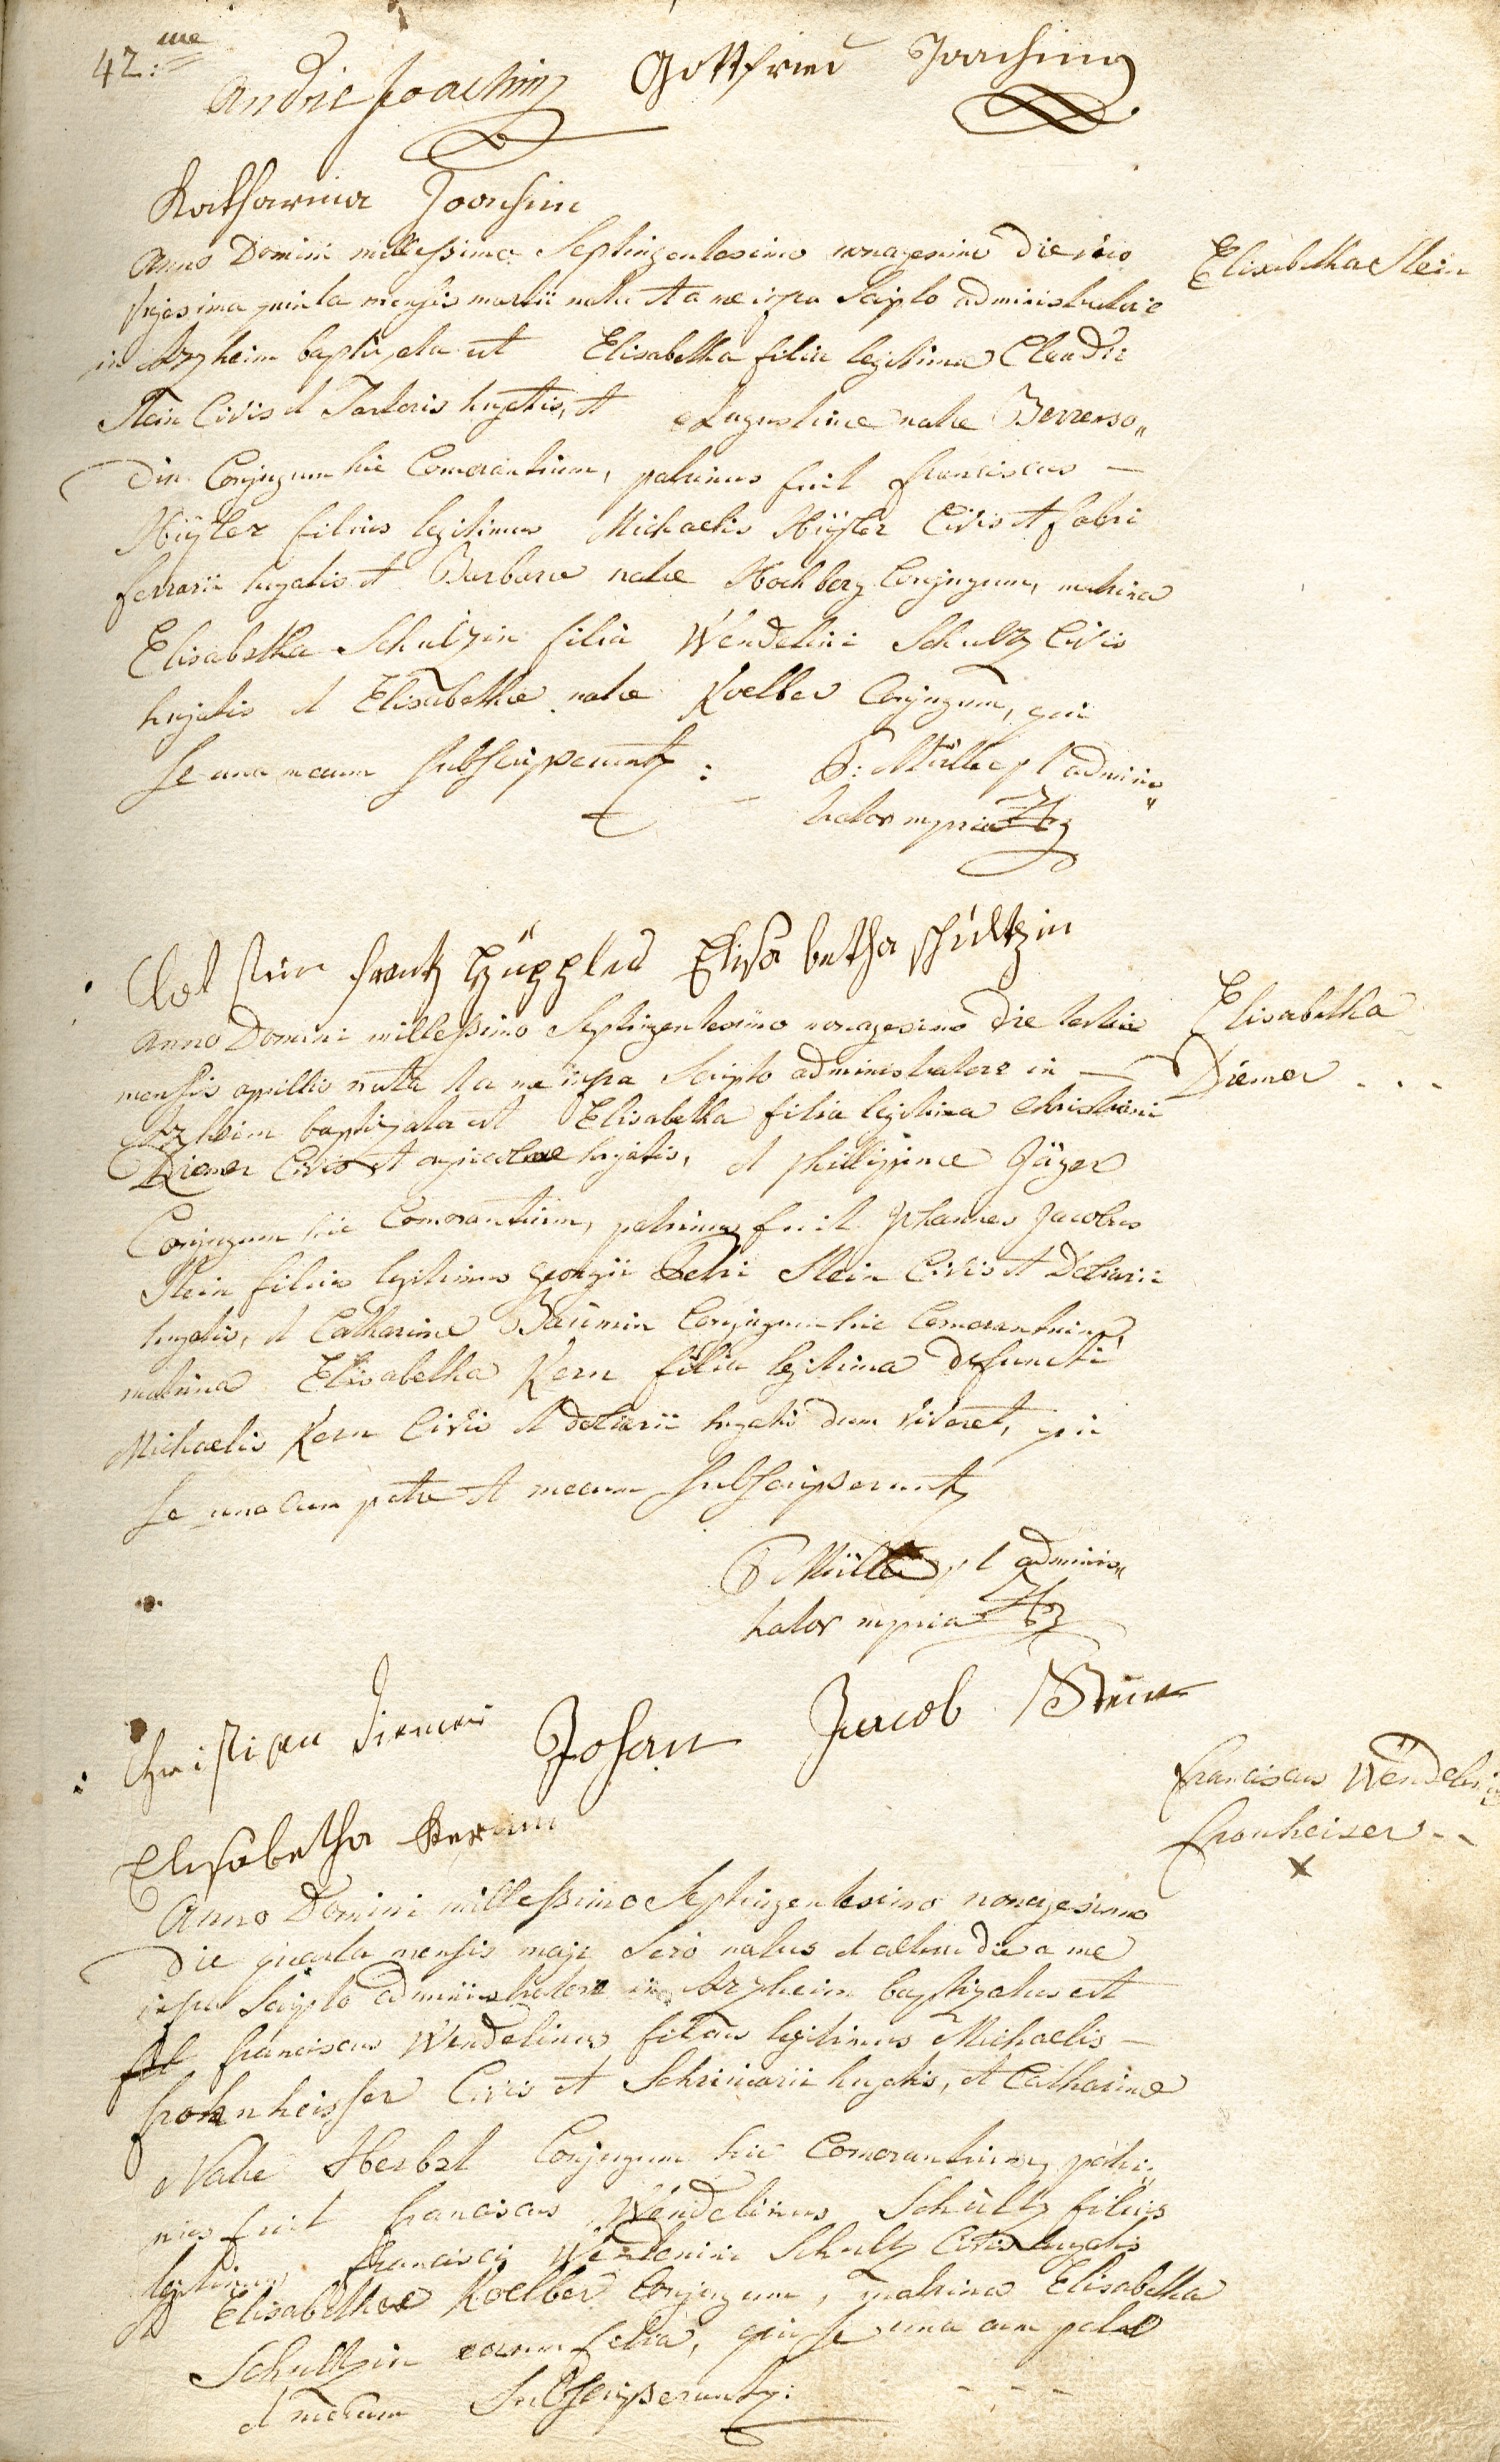 42.me
Andre Joachim Gottfried Joachim
Katharina Joachim
Anno Domini millessimo Septingentesimo nonagesimo die
vigesima quinta mensis martii nata et a me infra Scripto administratore
in Arzheim baptizata est Elisabetha filia legitima Claudii
Stein Civis et Sartoris hujatis, et Augustinae natae
Conjugum hic Comorantium, patrinus fuit franciscus
filius legitimus Michaelis Civis et fabri
ferrarii hujatis et Barbarae natae Hochberg Conjugum, matrina
Elisabetha Schultzin filia Wendelini Schultz Civis
hujatis et Elisabethae natae Koelber Conjugum, qui
se una mecum subscripserunt:
P: Müller p t adminis„
trator mpria
Elisabetha Stein
frantz Elisabetha schultzin
Anno Domini millessimo Septingentesimo nonagesimo die tertia
mensis aprillis nata et a me infra Scripto administratore in
Arzheim baptizata est Elisabetha filia legitima christiani
Diemer Civis et agricolae hujatis, et phillippinae Jäger
Conjugum hic Comorantium, patrinus fuit Johannes Jacobus
Stein filius legitimus georgii Petri Stein Civis et Doliarii
hujatis, et Catharinae Baumin Conjugum hic Comorantium,
matrina Elisabetha Kern filia legitima defuncti
Michaelis Kern Civis et doliarii hujatis dum viveret, qui
se una cum patre et mecum subscripserunt
P Müller p t adminis„
trator mpria
Elisabetha
Diemer . . .
Christian Diemer Johan Jacob Stein
Elisabetha Kernin
franciscus Wendelin
fronheiser - -
x
Anno Domini millessimo Septingentesimo nonagesimo
die quarta mensis maji sero natus et altera die a me
infra Scripto administratore in Arzheim baptizatus est
franciscus Wendelinus filius legitimus Michaelis
frohnheisser Civis et Schriniarii hujatis, et Catharinae
Natae Herbst Conjugum hic Comorantium, patri„
nus fuit franciscus Wendelinus Schultz filius
legitimus francisci Wendelini Schultz Civis hujatis
et Elisabethae Koelber Conjugum, matrina Elisabetha
Schultzin eorum filia, qui se una cum patre
et mecum subscripserunt: